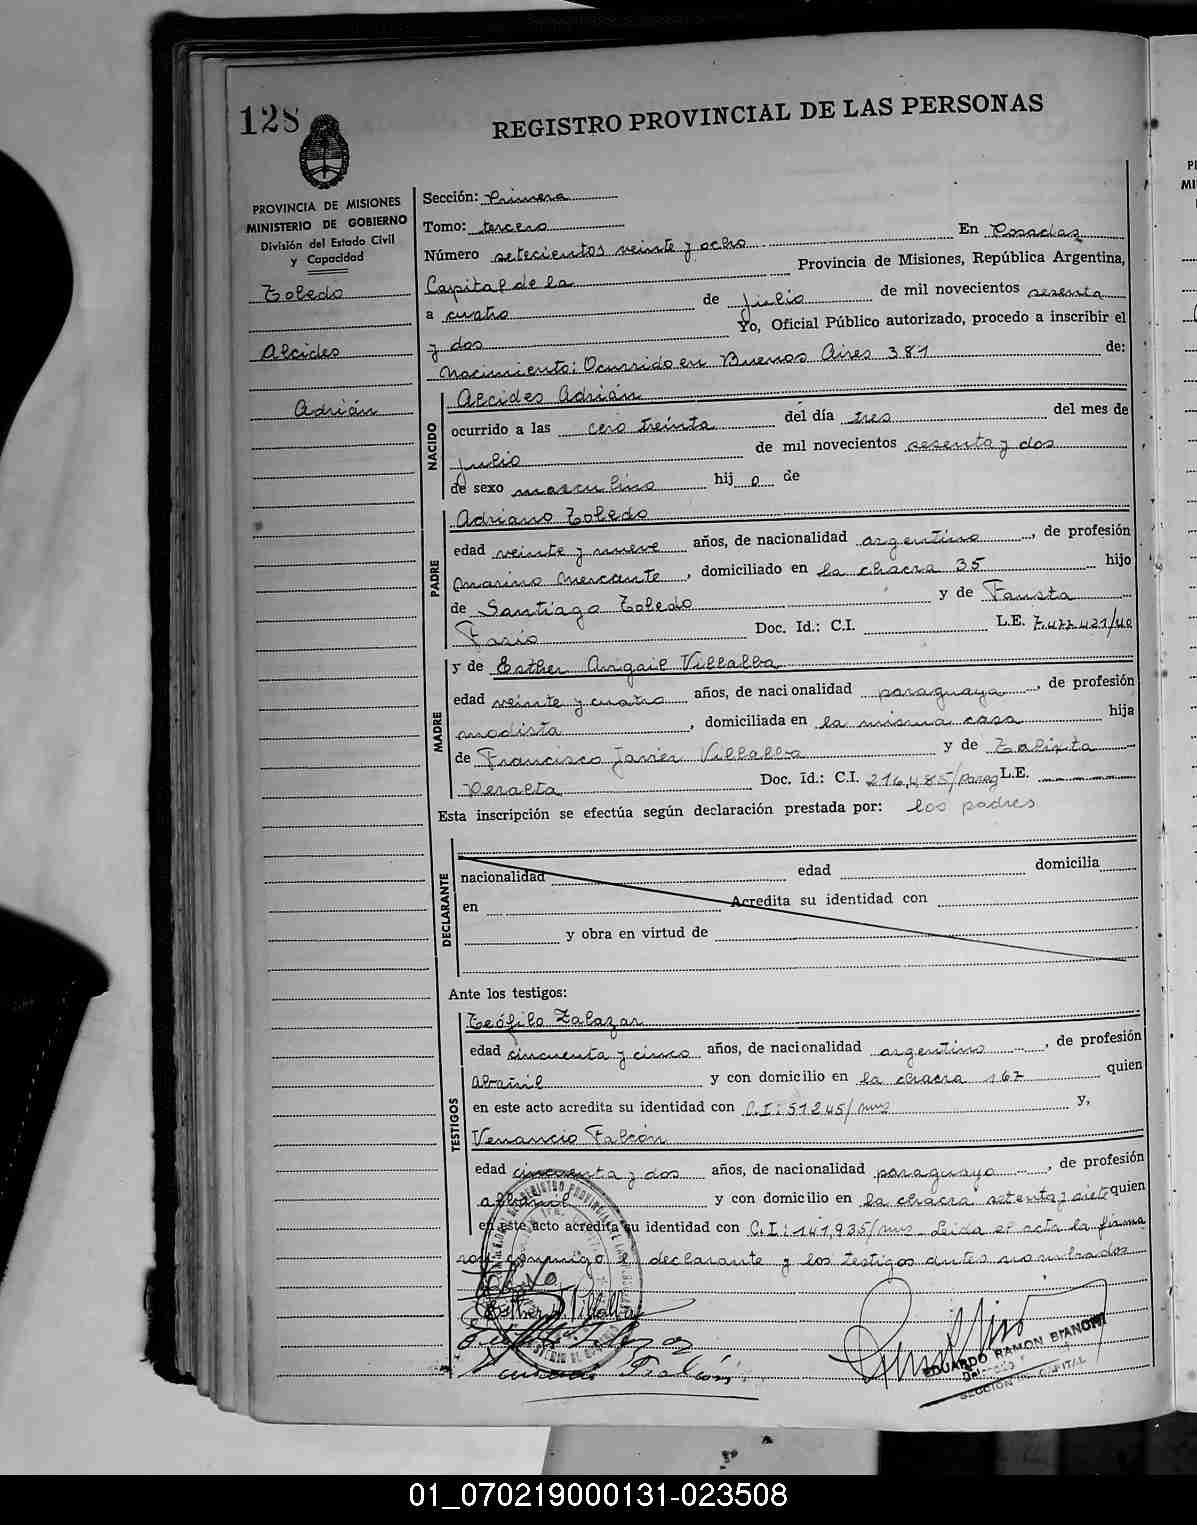 128
REGISTRO PROVINCIAL DE LAS PERSONAS
PROVINCIA DE MISIONES
MINISTERIO DE GOBIERNO
División del Estado Civil
y Capacidad
Toledo
Alcides
Adrián
Sección: Primera
Tomo: tercero
Número setecientos veinte y ocho En Posadas
Capital de la Provincia de Misiones, República Argentina,
a cuatro de julio de mil novecientos sesenta
y dos Yo, Oficial Público autorizado, procedo a inscribir el
Nacimiento: Ocurrido en Buenos Aires 381 de:
NACIDO
Alcides Adrián
ocurrido a las cero treinta del día tres del mes de
julio de mil novecientos sesenta y dos
de sexo masculino hijo de
PADRE
Adriano Toledo
edad veinte y nueve años, de nacionalidad argentino, de profesión
marino mercante, domiciliado en la chacra 35 hijo
de Santiago Toledo y de Fausta
Doc. Id.: C.I. L.E. 7.477.421/40
MADRE
y de Esther Argail Villalba
edad veinte y cuatro años, de nacionalidad paraguaya, de profesión
modista, domiciliada en la misma casa hija
de Francisco Javier Villalba y de Talixta
Peralta Doc. Id.: C.I. 216,485/Parag L.E.
Esta inscripción se efectúa según declaración prestada por: los padres
DECLARANTE
nacionalidad edad domicilia
en Acredita su identidad con
y obra en virtud de
Ante los testigos:
TESTIGOS
Teófilo Zalazar
edad cincuenta y cinco años, de nacionalidad argentino, de profesión
albañil y con domicilio en la chacra 167 quien
en este acto acredita su identidad con C.I: 51245/mns y,
Venancio Falcón
edad cincuenta y dos años, de nacionalidad paraguayo, de profesión
albañil y con domicilio en la chacra setenta y siete quien
en este acto acredita su identidad con C.I: 141,935/mns Leida el acta la firma
con conmigo el declarante y los testigos antes nombrados
Esther A. Villalba
Falcón
EDUARDO RAMON BIANCHI
SECCION CAPITAL
01_070219000131-023508